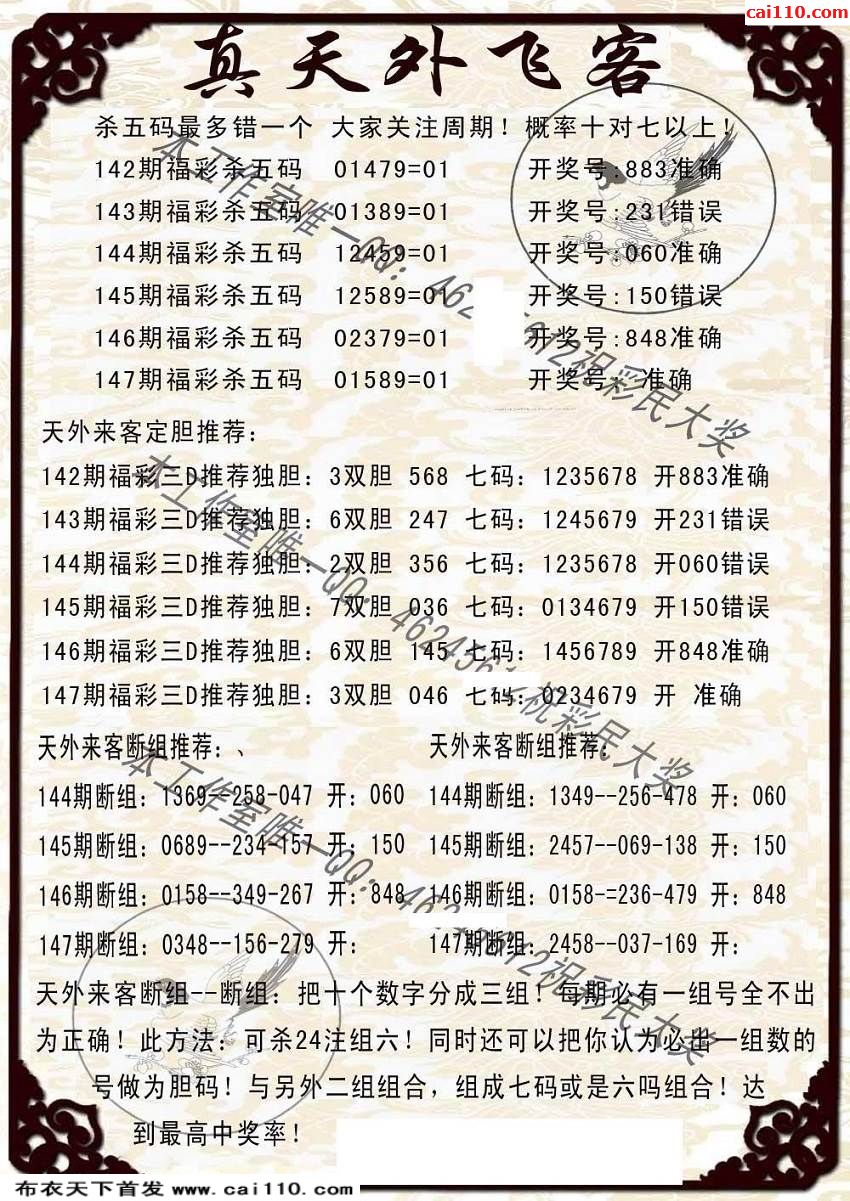 cai110.com
真天外飞客
杀五码最多错一个 大家关注周期！概率十对七以上！
142期福彩杀五码 01479=01 开奖号:883准确
143期福彩杀五码 01389=01 开奖号:231错误
144期福彩杀五码 12459=01 开奖号:060准确
145期福彩杀五码 12589=01 开奖号:150错误
146期福彩杀五码 02379=01 开奖号:848准确
147期福彩杀五码 01589=01 开奖号: 准确
天外来客定胆推荐：
142期福彩三D推荐独胆：3双胆 568 七码：1235678 开883准确
143期福彩三D推荐独胆：6双胆 247 七码：1245679 开231错误
144期福彩三D推荐独胆：2双胆 356 七码：1235678 开060错误
145期福彩三D推荐独胆：7双胆 036 七码：0134679 开150错误
146期福彩三D推荐独胆：6双胆 145 七码：1456789 开848准确
147期福彩三D推荐独胆：3双胆 046 七码：0234679 开 准确
天外来客断组推荐：、 天外来客断组推荐：
144期断组：1369--258-047 开：060 144期断组：1349--256-478 开：060
145期断组：0689--234-157 开：150 145期断组：2457--069-138 开：150
146期断组：0158--349-267 开：848 146期断组：0158-=236-479 开：848
147期断组：0348--156-279 开： 147期断组：2458--037-169 开：
天外来客断组--断组：把十个数字分成三组！每期必有一组号全不出
为正确！此方法：可杀24注组六！同时还可以把你认为必出一组数的
号做为胆码！与另外二组组合，组成七码或是六吗组合！达
到最高中奖率！
本工作室唯一QQ：462 612祝彩民大奖
本工作室唯一QQ：4624561祝彩民大奖
本工作室唯一QQ：462 612祝彩民大奖
布衣天下首发 www.cai110.com